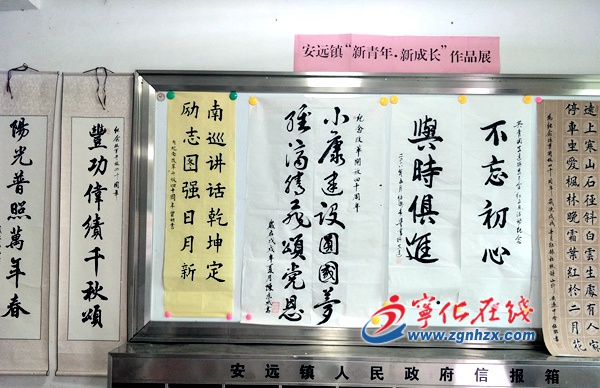 安远镇“新青年·新成长”作品展
遠上寒山石徑斜白雲生處有人家
停車坐愛楓林晚霜葉紅於二月花
不忘初心
與時俱進
紀念改革開放四十周年
小康建设圆國夢
經濟騰飛頌党恩
歲在戊戌年夏月陳
南巡讲话乾坤定
励志图强日月新
紀念改革开放四十周年
豐功偉績千秋頌
陽光普照萬年春
宁化在线
www.zgnhzx.com
安远镇人民政府信报箱